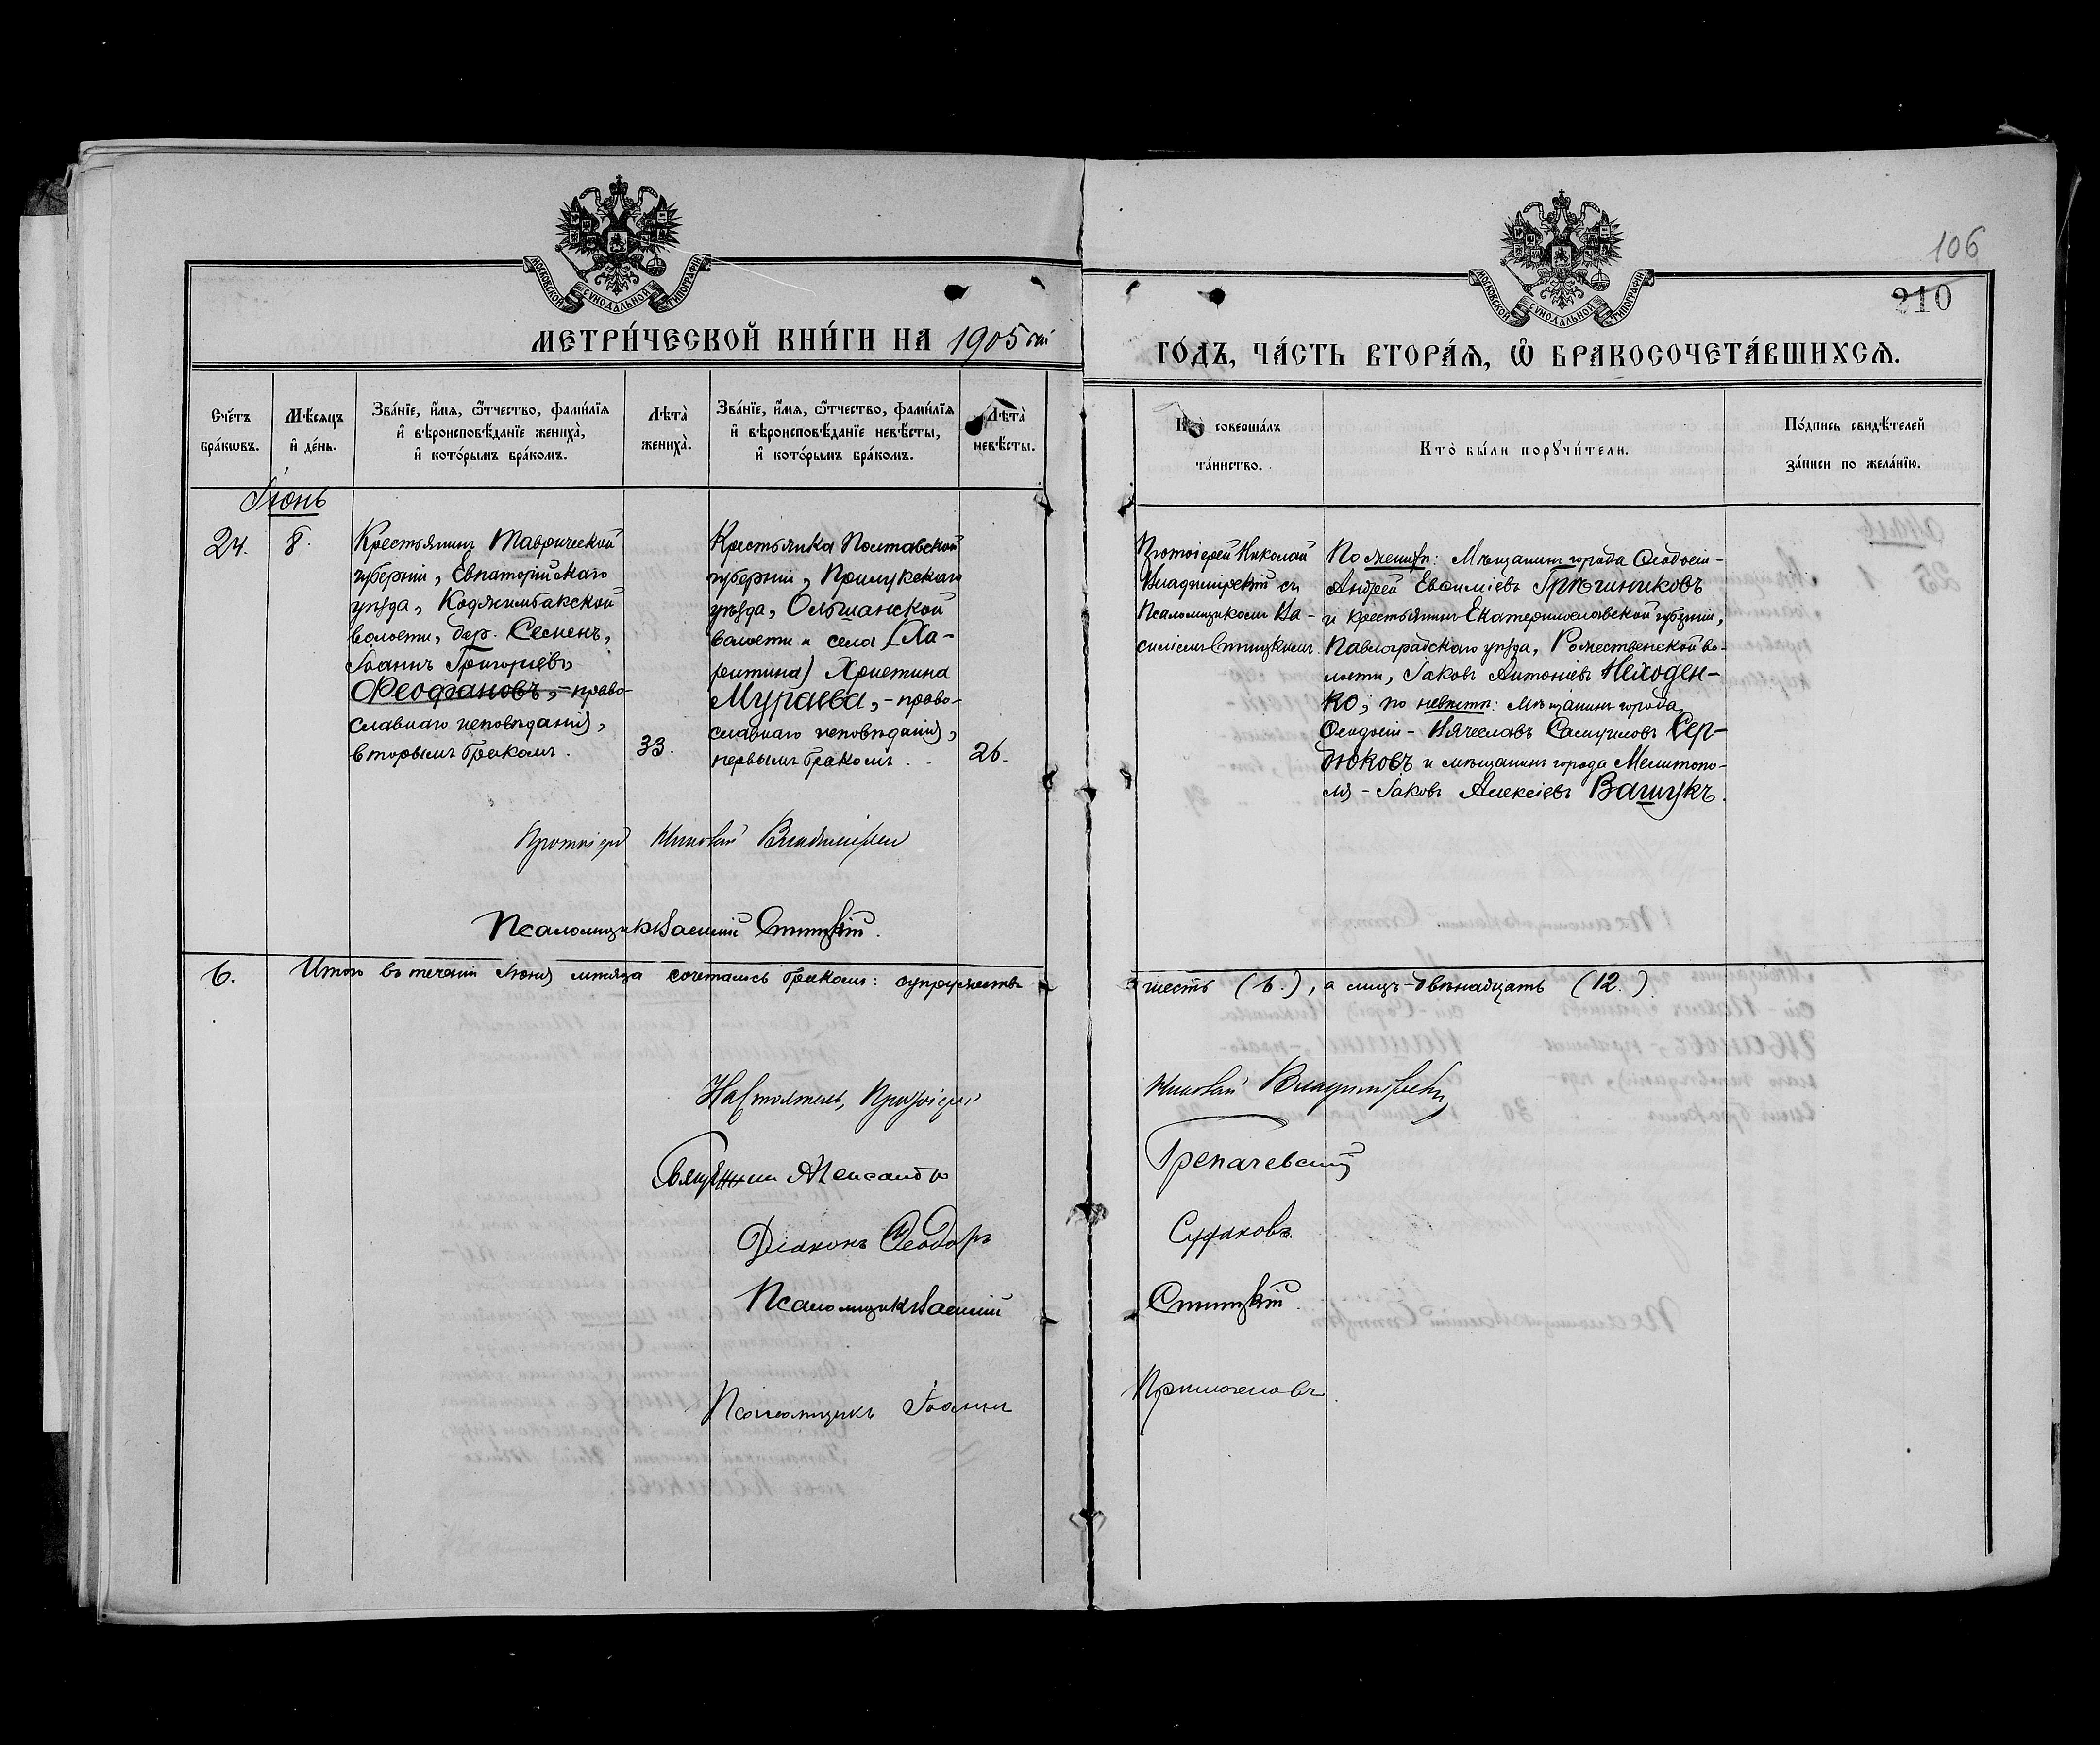 106
210
МОСКОВСКОЙ СѴНОДАЛЬНОЙ ТИПОГРАФІИ
МОСКОВСКОЙ СѴНОДАЛЬНОЙ ТИПОГРАФІИ
МЕТРИ́ЧЕСКОЙ КНИ́ГИ НА 1905 ый
ГО́ДЪ, ЧА́СТЬ ВТОРА́Ѧ, Ѽ БРАКОСОЧЕТА́ВШИХСѦ.
Сче́тъ
бра́кωвъ.
Мѣ́сѧцъ
и҆ де́нь.
Зва́нїе, и҆́мѧ, ѻ҆́тчество, фами́лїѧ
и҆ вѣроисповѣ́данїе жениха̀,
и҆ кото́рымъ бра́комъ.
Лѣта̀
жениха̀.
Зва́нїе, и҆́мѧ, ѻ҆́тчество, фами́лїѧ
и҆ вѣроисповѣ́данїе невѣ́сты,
и҆ кото́рымъ бра́комъ.
Лѣта̀
невѣ́сты.
Кто̀ соверша́лъ
та́инство.
Кто̀ бы́ли порꙋчи́тели.
По́дпись свидѣ́телей
за́писи по жела́нїю.
Іюнь
24.
8.
Крестьянинъ Таврической
губерніи, Евпаторійскаго
уѣзда, Коджамбакской
волости, дер.
Іоаннъ Григоріевъ
Ѳеофановъ, – право-
славнаго исповѣданія,
вторымъ бракомъ.
33.
Крестьянка Полтавской
губерніи, Прилукскаго
уѣзда, Ольшанской
волости и села (Ха-
ритина) Христина
Мураева, – право-
славнаго исповѣданія,
первымъ бракомъ.
26.
Протоіерей Николай
Владимірскій съ
Псаломщикомъ Ва-
силіемъ
По женихѣ: Мѣщанинъ города Ѳеодосіи –
Андрей Евѳиміевъ
и крестьянинъ Екатеринославской губерніи,
Павлоградскаго уѣзда, Рожественской во-
лости, Іаковъ Антоніевъ Неходен-
ко; по невѣстѣ: Мѣщанинъ города
Ѳеодосіи – Вячеславъ Самуиловъ Сер-
дюковъ и мѣщанинъ города Мелитопо-
ля – Іаковъ Алексіевъ Вашукъ.
Протоіерей Николай Владимірскій
Псаломщикъ Василій
6.
Итого въ теченіи Іюня мѣсяца сочеталось бракомъ: супружествъ
шесть (6.), а лицъ – двѣнадцать (12.)
Настоятель, Протоіерей Николай Владимірскій
Священникъ Александръ
Діаконъ Ѳеодоръ
Псаломщикъ Василій
Псаломщикъ Іоаннъ